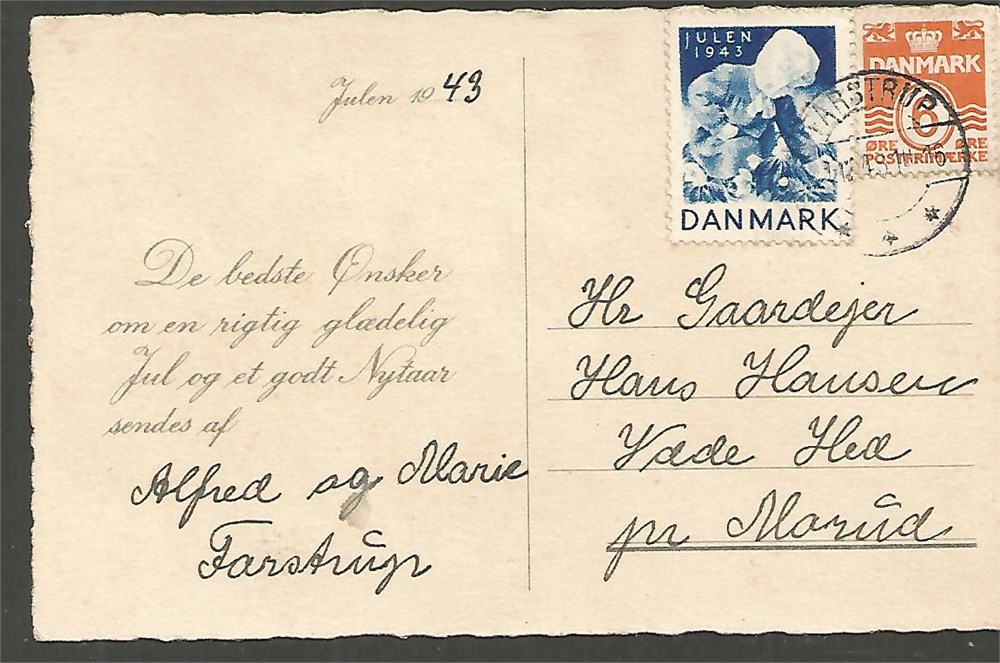 Julen 1943
De bedste Ønsker
om en rigtig glædelig
Jul og et godt Nytaar
sendes af
Alfred og Marie
Farstrup
JULEN
1943
DANMARK
DANMARK
6
ØRE ØRE
POSTFRIMÆRKE
FARSTRUP
Hr Gaardejer
Hans Hansen
Væde Hed
pr Morud